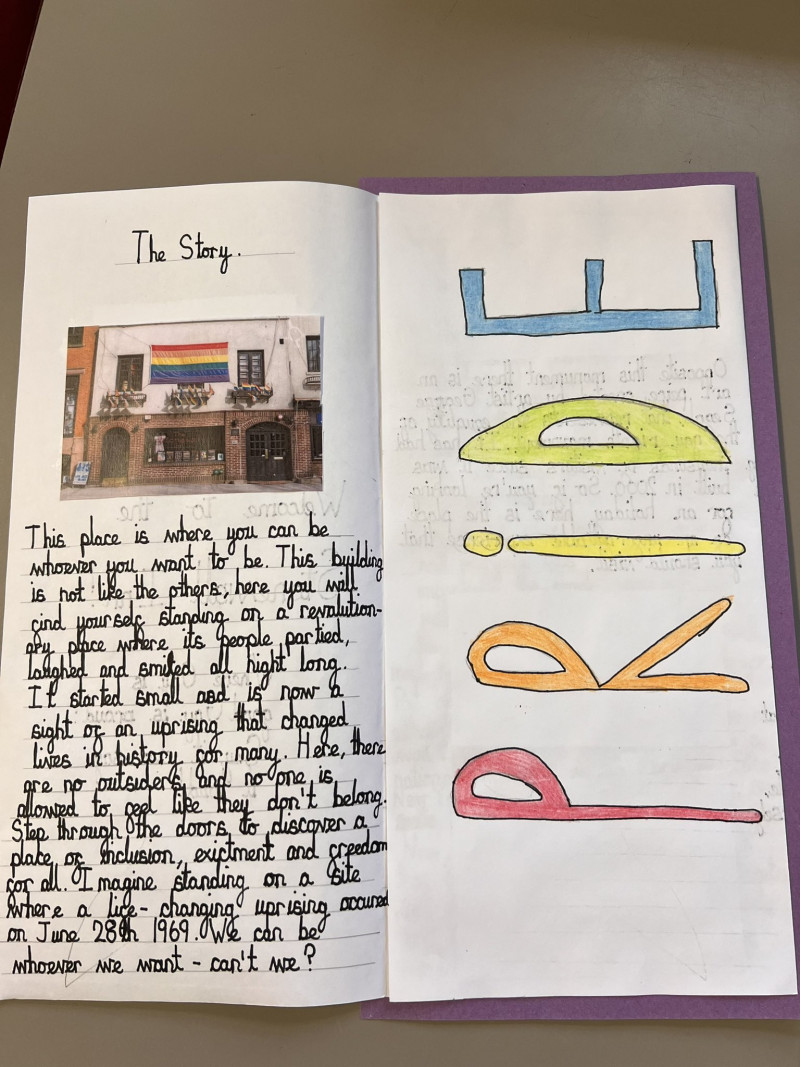 The Story.
This place is where you can be
whoever you want to be. This building
is not like the others, here you will
find yourself standing on a revolution-
ary place where its people partied,
laughed and smiled all night long.
It started small and is now a
sight of an uprising that changed
lives in history for many. Here, there
are no outsiders and no one is
allowed to feel like they don't belong.
Step through the doors to discover a
place of inclusion, exictment and freedom
for all. Imagine standing on a site
where a life-changing uprising occured
on June 28th 1969. We can be
whoever we want - can't we?
PRiDE